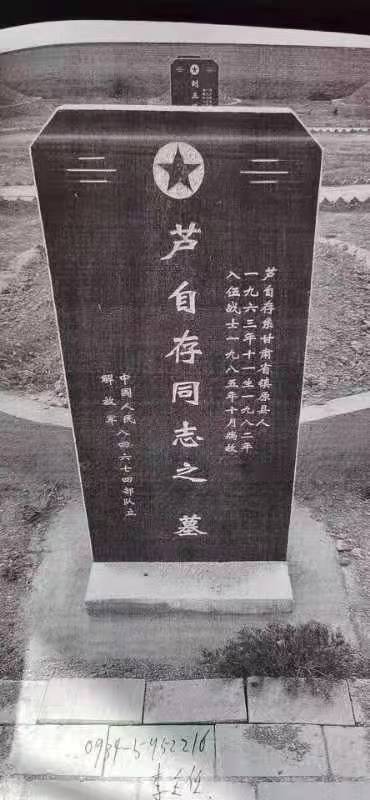 芦自存系甘肃省镇原县人
一九六三年十一生一九八二年
入伍战士一九八五年十月病故
芦自存同志之墓
中国人民
解放军
八四六七四部队立